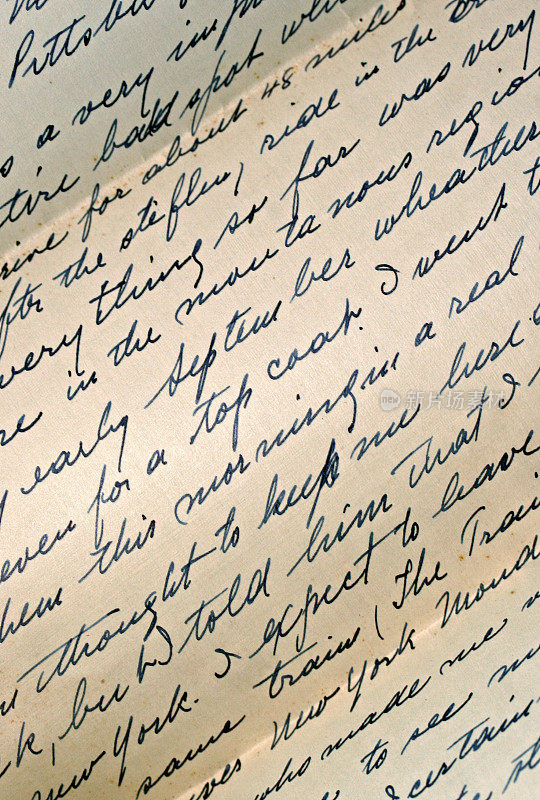 Pittsbu
s a very im
ture bald spot wh
rive for about 48 miles
ftr the stiflen, ride in the
very thing so far was very
re in the mountanous region
early September wheather
even for a top coat. I went t
hem this morning in a real
thought to keep me here
k, but I told him that I
new York. I expect to leave
same train (The Trai
ves New York Mond
who made me
to see m
certain
new 新片场素材